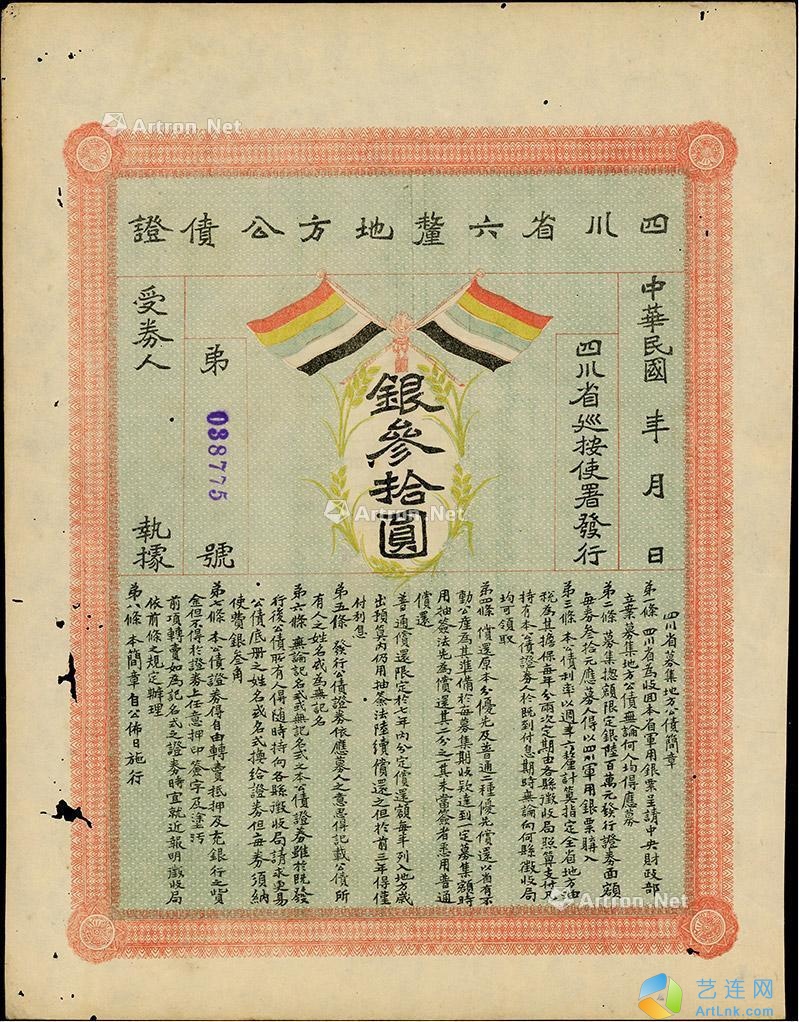 四川省六釐地方公債證
中華民國 年 月 日
四川省巡按使署發行
銀參拾圓
弟 038775 號
受券人 執據
四川省募集地方公債簡章
弟一條 四川省為收回本省軍用銀票呈請中央財政部
立案募集地方公債無論何人均得應募
弟二條 募集總額限定銀陸百萬元發行證券面額
每券叁拾元應募人得以四川軍用銀票購入
弟三條 本公債利率以週年六釐計算指定全省地方油
稅為其擔保每年分兩次定期由各縣徵收局照算支付凡
持有本公債證券人於既到付息期時無論向何縣徵收局
均可領取
弟四條 償還原本分優先及普通二種優先償還以省有不
動公產為其準備於每募集期收款達到一定募集額時
用抽簽法先為償還其二分之一其未當簽者悉用普通
償還
普通償還限定於七年內分定償還額每年列入地方歲
出預算內仍用抽簽法陸續償還之但於前三年得僅
付利息
弟五條 發行公債證券依應募人之意思得記載公債所
有人之姓名或為無記名
弟六條 無論記名式或無記名式之本公債證券雖於既發
行後公債所有人得隨時持向各縣徵收局請求更易
公債底冊之姓名或名式換給證券但每券須納
使費銀叁角
弟七條 本公債證券得自由轉賣抵押及充銀行之貨
金但不得於證券上任意押印簽字及塗污
前項轉賣如為記名式之證券時宜就近報明徵收局
依前條之規定辦理
弟八條 本簡章自公佈日施行
Artron.Net
Artron.Net
Artron.Net
艺连网
ArtLnk.com